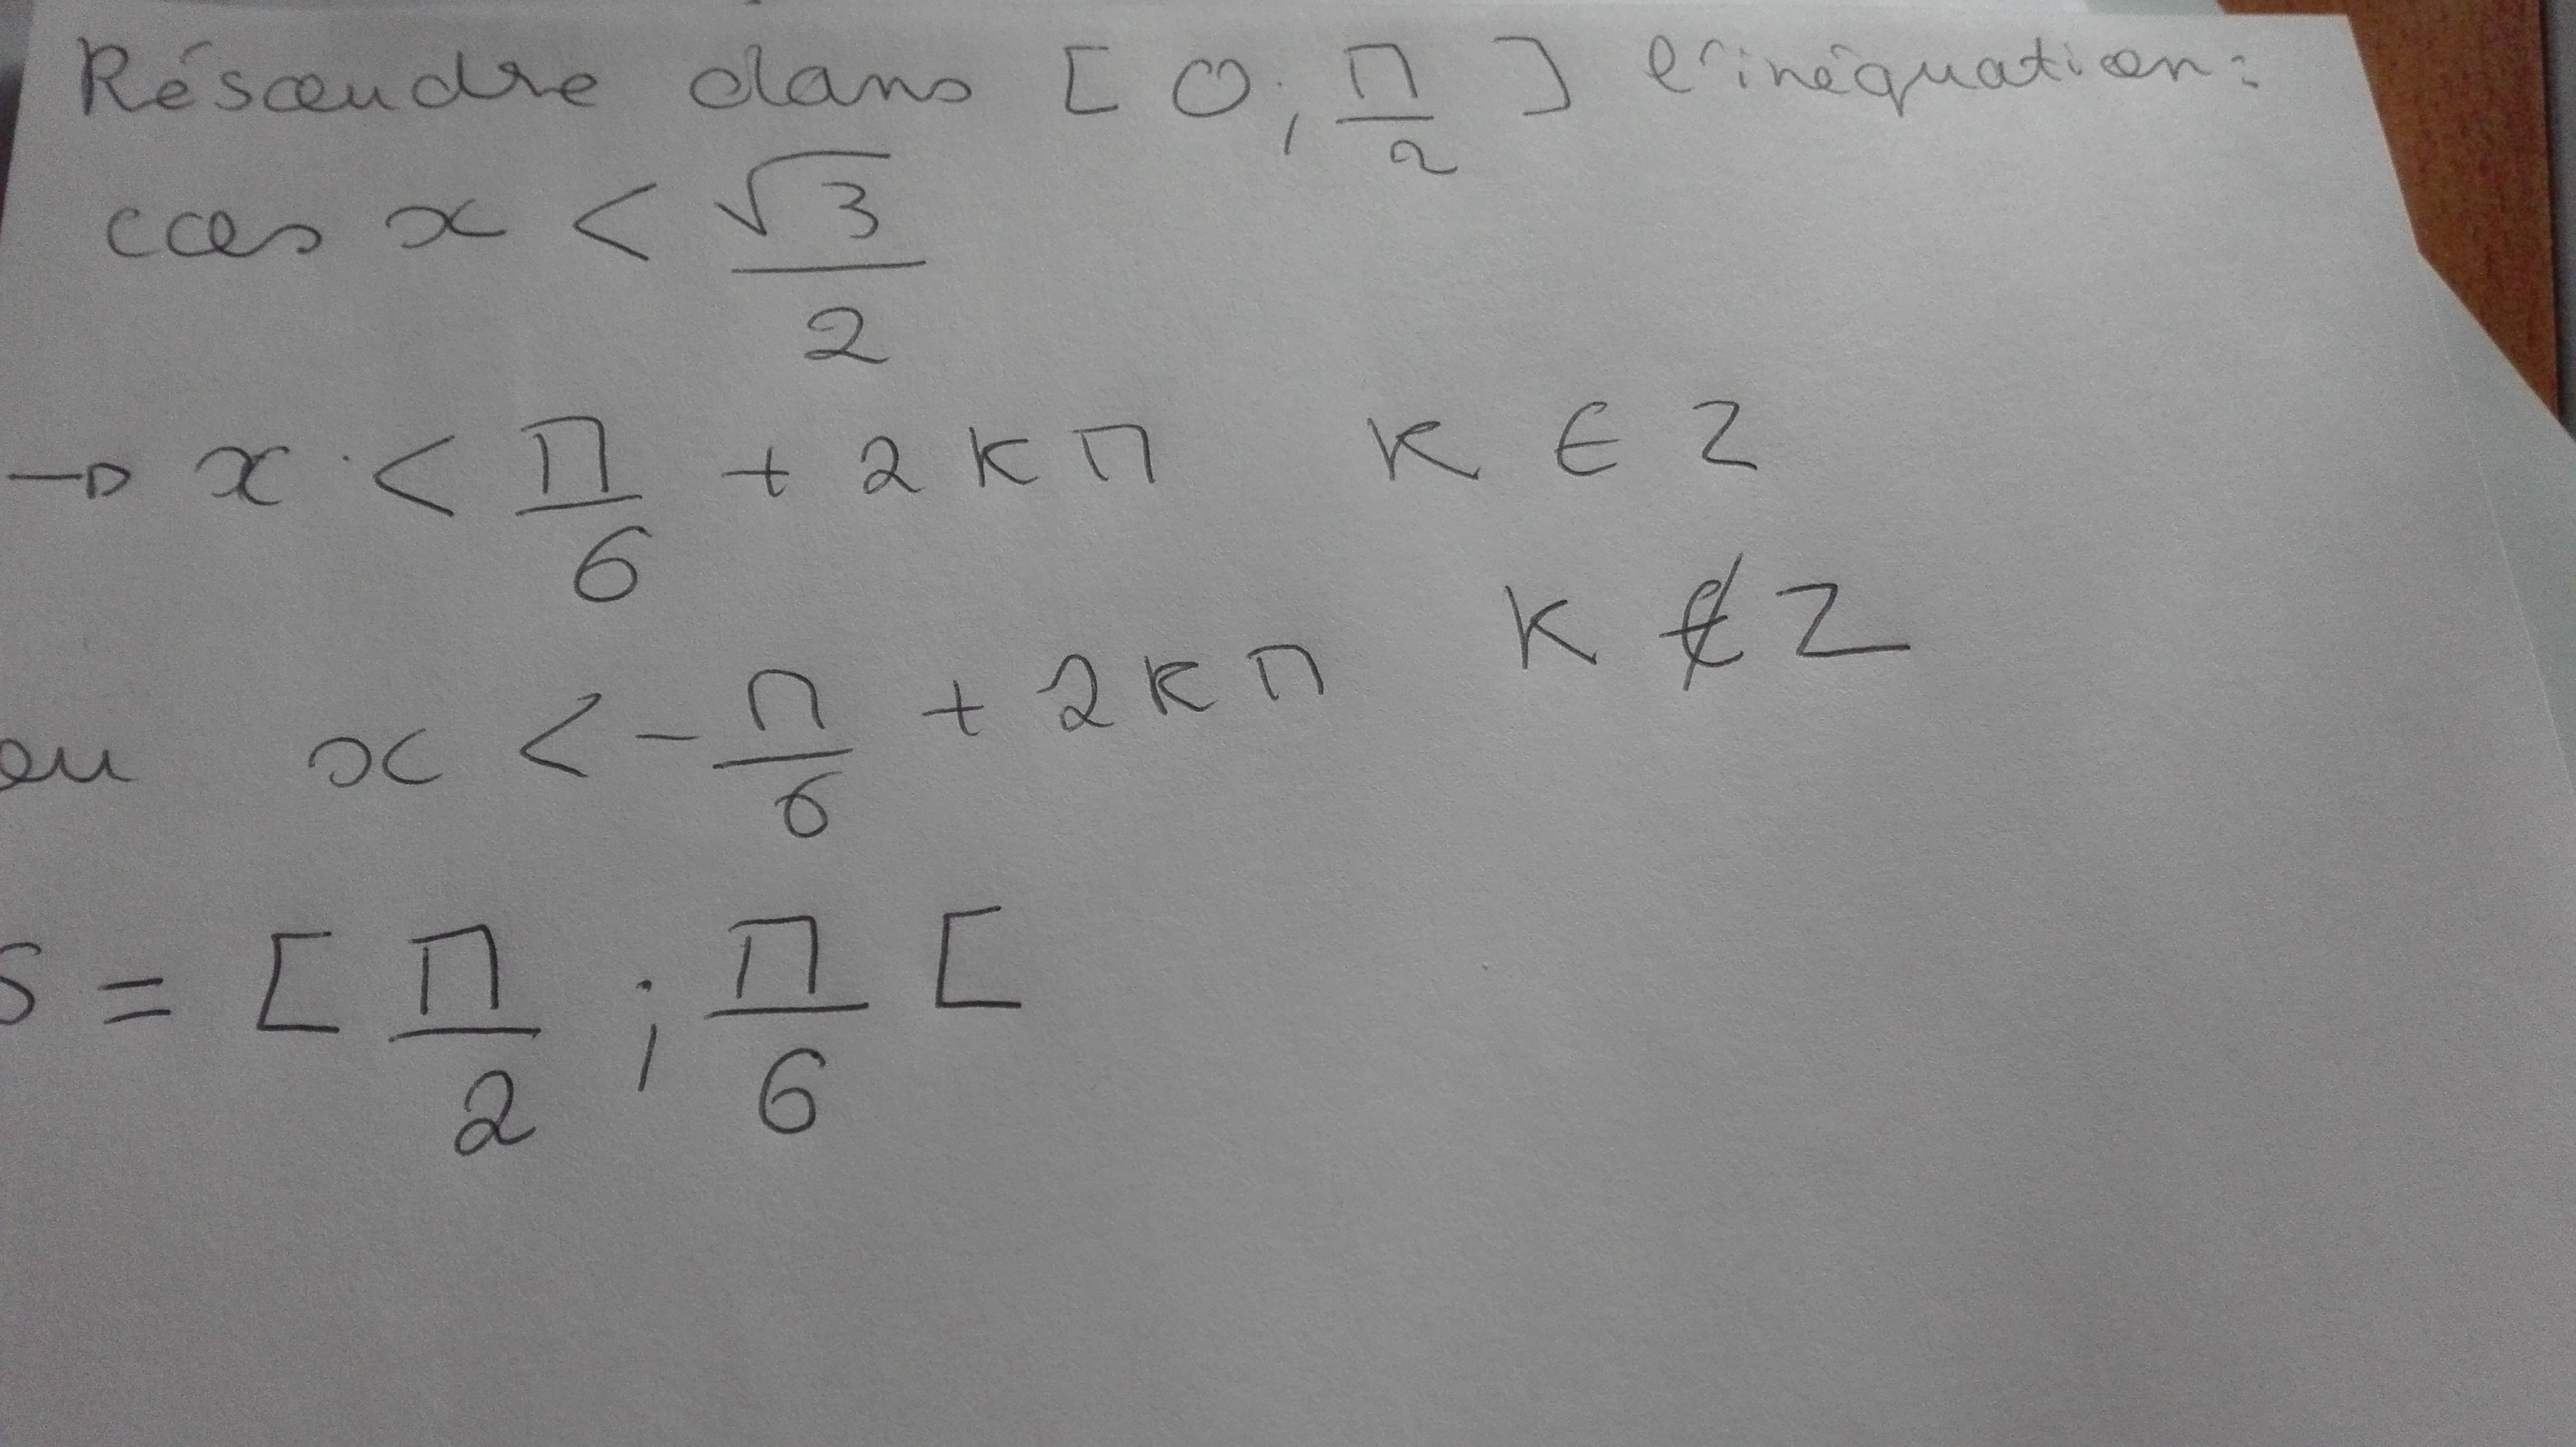 Résoudre dans [ 0 ; π/2 ] l'inéquation :
cos x < √3/2
→ x < π/6 + 2kπ k ∈ Z
k ∉ Z
ou x < -π/6 + 2kπ
S = [ π/2 ; π/6 [